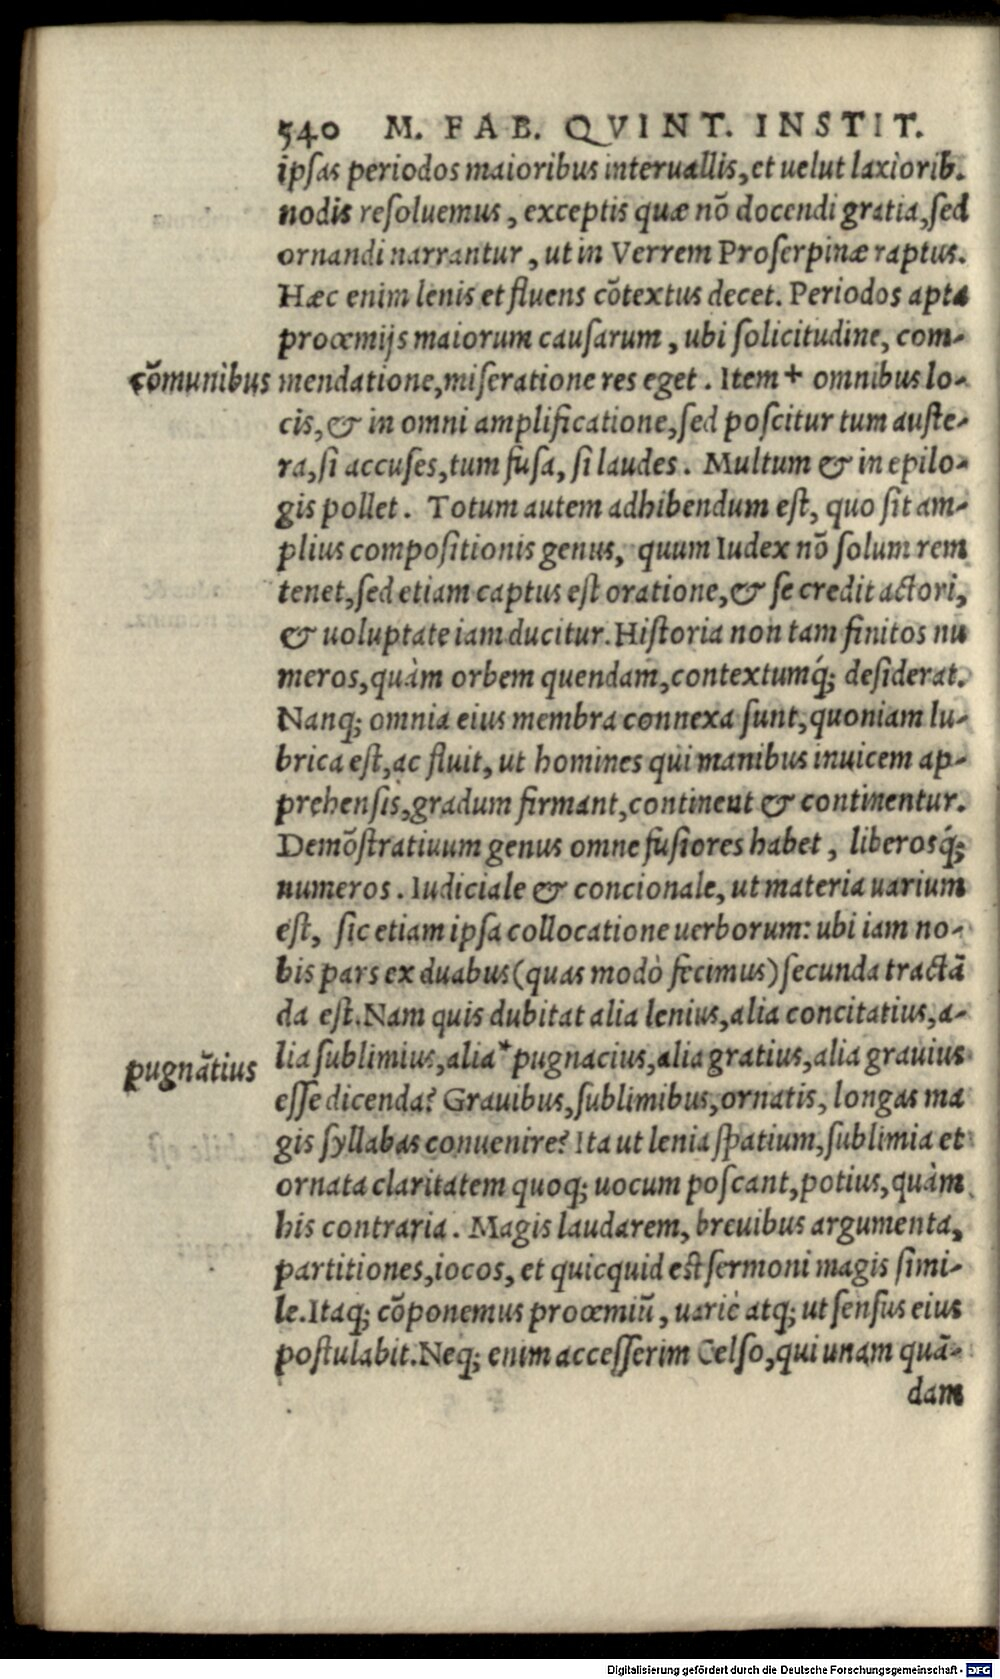 540 M. FAB. QVINT. INSTIT.
ipſas periodos maioribus interuallis, et uelut laxiorib.
nodis reſoluemus, exceptis quæ nō docendi gratia, ſed
ornandi narrantur, ut in Verrem Proſerpinæ raptus.
Hæc enim lenis et fluens cōtextus decet. Periodos apta
proœmijs maiorum cauſarum, ubi ſolicitudine, com-
cōmunibus mendatione, miſeratione res eget. Item + omnibus lo-
cis, & in omni amplificatione, ſed poſcitur tum auſte-
ra, ſi accuſes, tum fuſa, ſi laudes. Multum & in epilo-
gis pollet. Totum autem adhibendum eſt, quo ſit am-
plius compoſitionis genus, quum Iudex nō ſolum rem
tenet, ſed etiam captus eſt oratione, & ſe credit actori,
& uoluptate iam ducitur. Hiſtoria non tam finitos nu
meros, quàm orbem quendam, contextumq́; deſiderat.
Nanq; omnia eius membra connexa ſunt, quoniam lu-
brica eſt, ac fluit, ut homines qui manibus inuicem ap-
prehenſis, gradum firmant, continent & continentur.
Demōſtratiuum genus omne fuſiores habet, liberosq́;
numeros. Iudiciale & concionale, ut materia uarium
eſt, ſic etiam ipſa collocatione uerborum: ubi iam no-
bis pars ex duabus (quas modò fecimus) ſecunda tractā
da eſt. Nam quis dubitat alia lenius, alia concitatius, a-
pugnātius lia ſublimius, alia * pugnacius, alia gratius, alia grauius
eſſe dicenda? Grauibus, ſublimibus, ornatis, longas ma
gis ſyllabas conuenire? Ita ut lenia ſpatium, ſublimia et
ornata claritatem quoq; uocum poſcant, potius, quàm
his contraria. Magis laudarem, breuibus argumenta,
partitiones, iocos, et quicquid eſt ſermoni magis ſimi-
le. Itaq; cōponemus proœmiū, uariè atq; ut ſenſus eius
poſtulabit. Neq; enim acceſſerim Celſo, qui unam quā-
dam
Digitalisierung gefördert durch die Deutsche Forschungsgemeinschaft - DFG